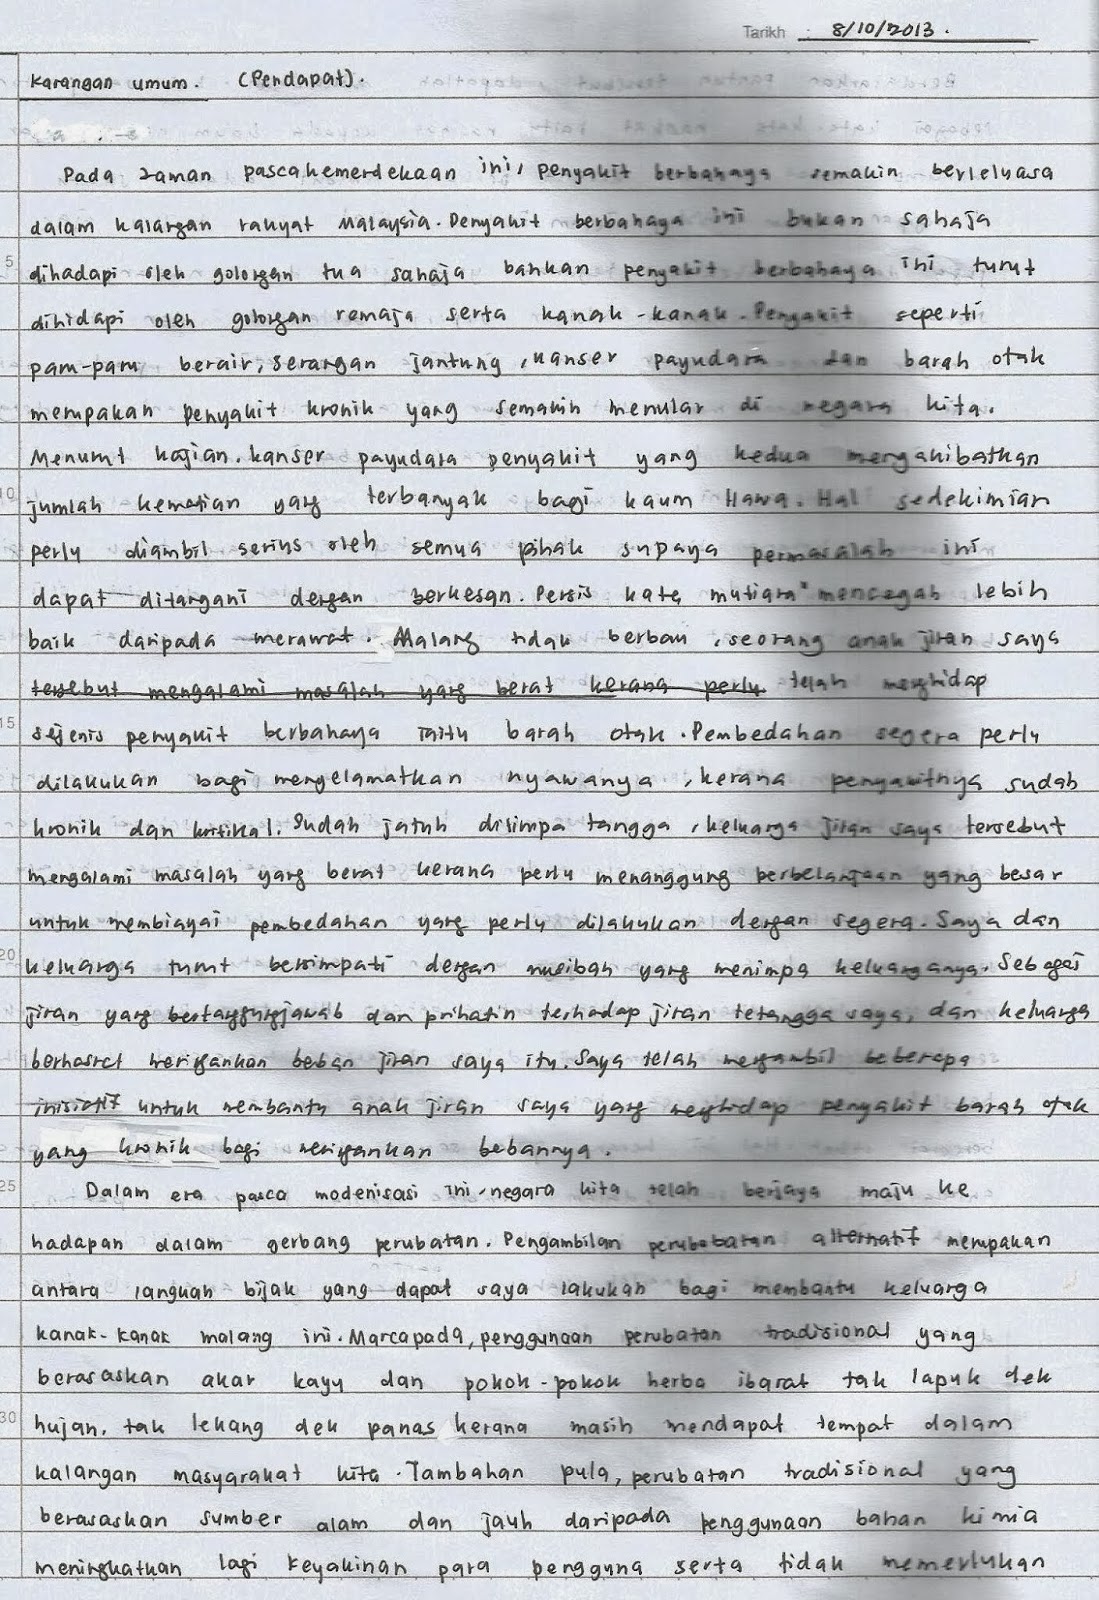 Tarikh : 8/10/2013.
Karangan umum. (Pendapat).
Pada zaman pascakemerdekaan ini, penyakit berbahaya semakin berleluasa
dalam kalangan rakyat Malaysia. Penyakit berbahaya ini bukan sahaja
5 dihadapi oleh golongan tua sahaja bahkan penyakit berbahaya ini turut
dihidapi oleh golongan remaja serta kanak-kanak. Penyakit seperti
pam-paru berair, serangan jantung, kanser payudara dan barah otak
merupakan penyakit kronik yang semakin menular di negara kita.
Menurut kajian. kanser payudara penyakit yang kedua mengakibatkan
10 jumlah kematian yang terbanyak bagi kaum Hawa. Hal sedekimian
perlu diambil serius oleh semua pihak supaya permasalah ini
dapat ditangani dengan berkesan. Persis kata mutiara "mencegah lebih
baik daripada merawat. Malang tidak berbau, seorang anak jiran saya
tersebut mengalami masalah yang berat kerana perlu telah menghidap
15 sejenis penyakit berbahaya iaitu barah otak. Pembedahan segera perlu
dilakukan bagi menyelamatkan nyawanya, kerana penyakitnya sudah
kronik dan kritikal. Sudah jatuh ditimpa tangga, keluarga jiran saya tersebut
mengalami masalah yang berat kerana perlu menanggung perbelanjaan yang besar
untuk membiayai pembedahan yang perlu dilakukan dengan segera. Saya dan
20 keluarga turut bersimpati dengan musibah yang menimpa keluarganya. Sebagai
jiran yang bertanggungjawab dan prihatin terhadap jiran tetangga saya, dan keluarga
berhasrat meringankan beban jiran saya itu. Saya telah mengambil beberapa
inisiatif untuk membantu anak jiran saya yang menghidap penyakit barah otak
yang kronik bagi meringankan bebannya.
25 Dalam era pasca modenisasi ini, negara kita telah berjaya maju ke
hadapan dalam gerbang perubatan. Pengambilan perubabatan alternatif merupakan
antara langkah bijak yang dapat saya lakukan bagi membantu keluarga
kanak-kanak malang ini. Marcapada, penggunaan perubatan tradisional yang
berasaskan akar kayu dan pokok-pokok herba ibarat tak lapuk dek
30 hujan, tak lekang dek panas kerana masih mendapat tempat dalam
kalangan masyarakat kita. Tambahan pula, perubatan tradisional yang
berasaskan sumber alam dan jauh daripada penggunaan bahan kimia
meningkatkan lagi keyakinan para pengguna serta tidak memerlukan